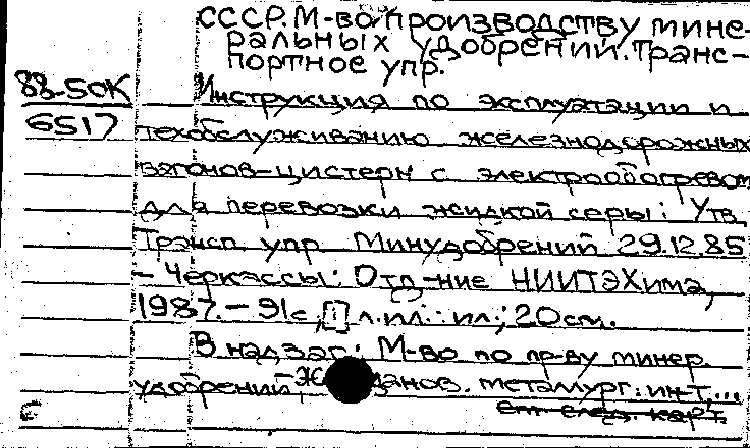 СССР. М-во по производству мине-
ральных удобрений. Транс-
портное упр.
88-50К
6517
Инструкция по эксплуатации и
техобслуживанию железнодорожных
вагонов-цистерн с электрообогревом
для перевозки жидкой серы: Утв.
Трансп. упр. Минудобрений 29.12.85
- Черкассы: Отд-ние НИИТЭХима,
1987. - 91с., [1] л.ил.: ил.; 20см.
В надзаг: М-во по пр-ву минер.
удобрений, - Ж данов. металлург. ин-т,...
см след. карт.